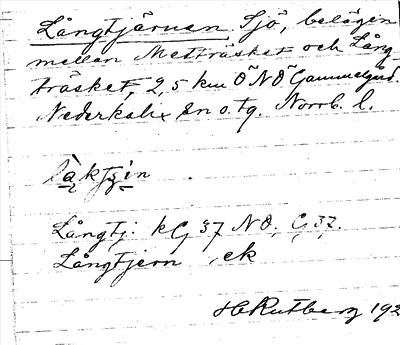 Långtjärnen Sjö, belägen
mellan Metträsket och Lång
träsket, 2,5 km ÖNÖ Gammelgård.
Nederkalix sn o. tg. Norrb. l.
Långtj: kG 37 NO, G 37.
Långtjern ek
H Rutberg 192